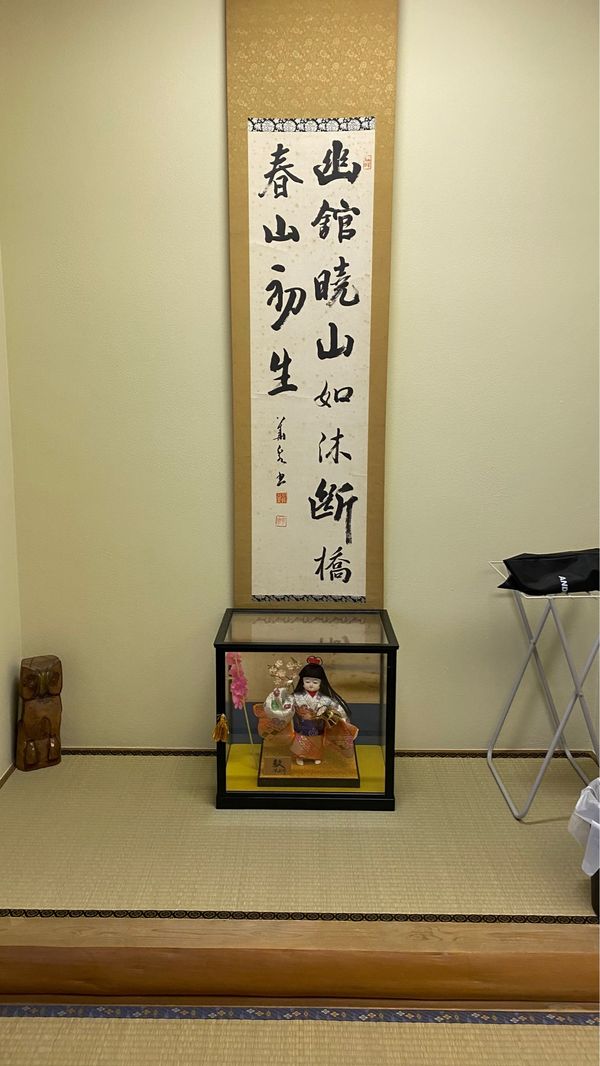 幽舘曉山如沐斷橋
春山初生
AND